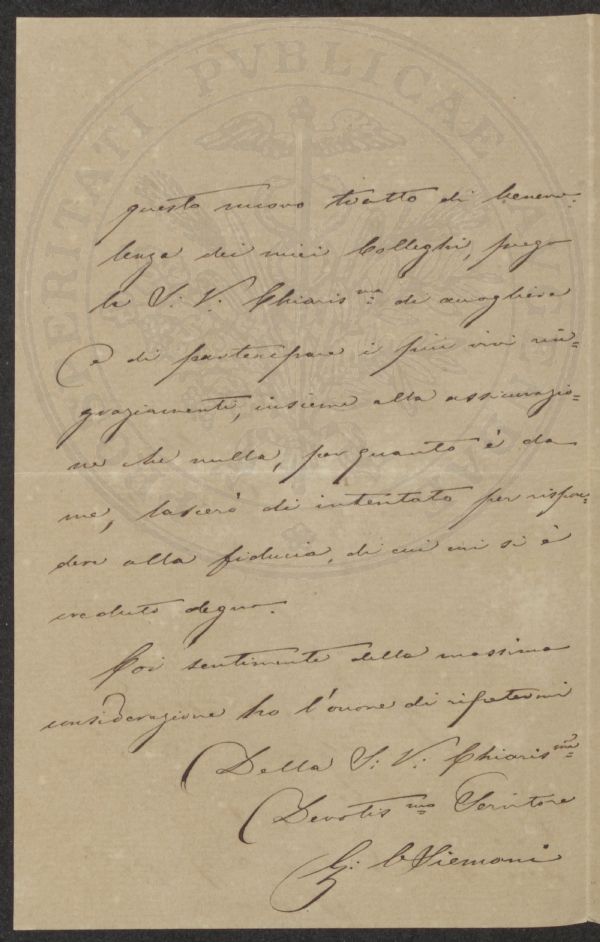 VERITATI PVBLICAE
questo nuovo tratto di benevo=
lenza dei miei Colleghi, prego
la S: V: Chiaris ma di accogliere
e di partecipare i più vivi rin=
graziamenti, insieme alla assicurazio=
ne che nulla, per quanto è da
me, lascerò di intentato per rispon=
dere alla fiducia, di cui mi si è
creduto degno.
Coi sentimenti della massima
considerazione ho l'onore di ripetermi
Della S: V: Chiaris ma
Devotis mo Servitore
G: